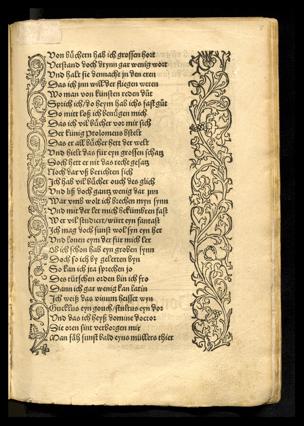 Von büchern hab ich grossen hort
Verstand doch drynn gar wenig wort
Und halt sie dennacht jn den eren
Das ich jnn will der fliegen weren
Wo man von künsten reden důt
Sprich ich / do heym hab ichs fast gůt
Do mitt loß ich benügen mich
Das ich vil bücher vor mir sich
Der künig Ptolomeus bstelt
Das er all bücher hett der welt
Und hielt das für eyn grossen schatz
Doch hett er nit das recht gesatz
Noch dar vß berichten sich
Ich hab vil bücher ouch des glich
Und liß doch gantz wenig dar jnn
War vmb wolt ich brechen myn synn
Und mit der ler mich bekümbren fast
Wer vil studiert / würt eyn fantast
Ich mag doch sunst wol syn eyn her
Und lonen eym der für mich ler
Ob ich schon hab eyn groben synn
Doch so ich by gelerten byn
So kan ich jta sprechen jo
Des tütschen orden bin ich fro
Dann ich gar wenig kan latin
Ich weiß das vinum heisset wyn
Gucklus eyn gouch / stultus eyn dor
Und das ich heyß domine doctor
Die oren sint verborgen mir
Man säh sunst bald eyns müllers thier